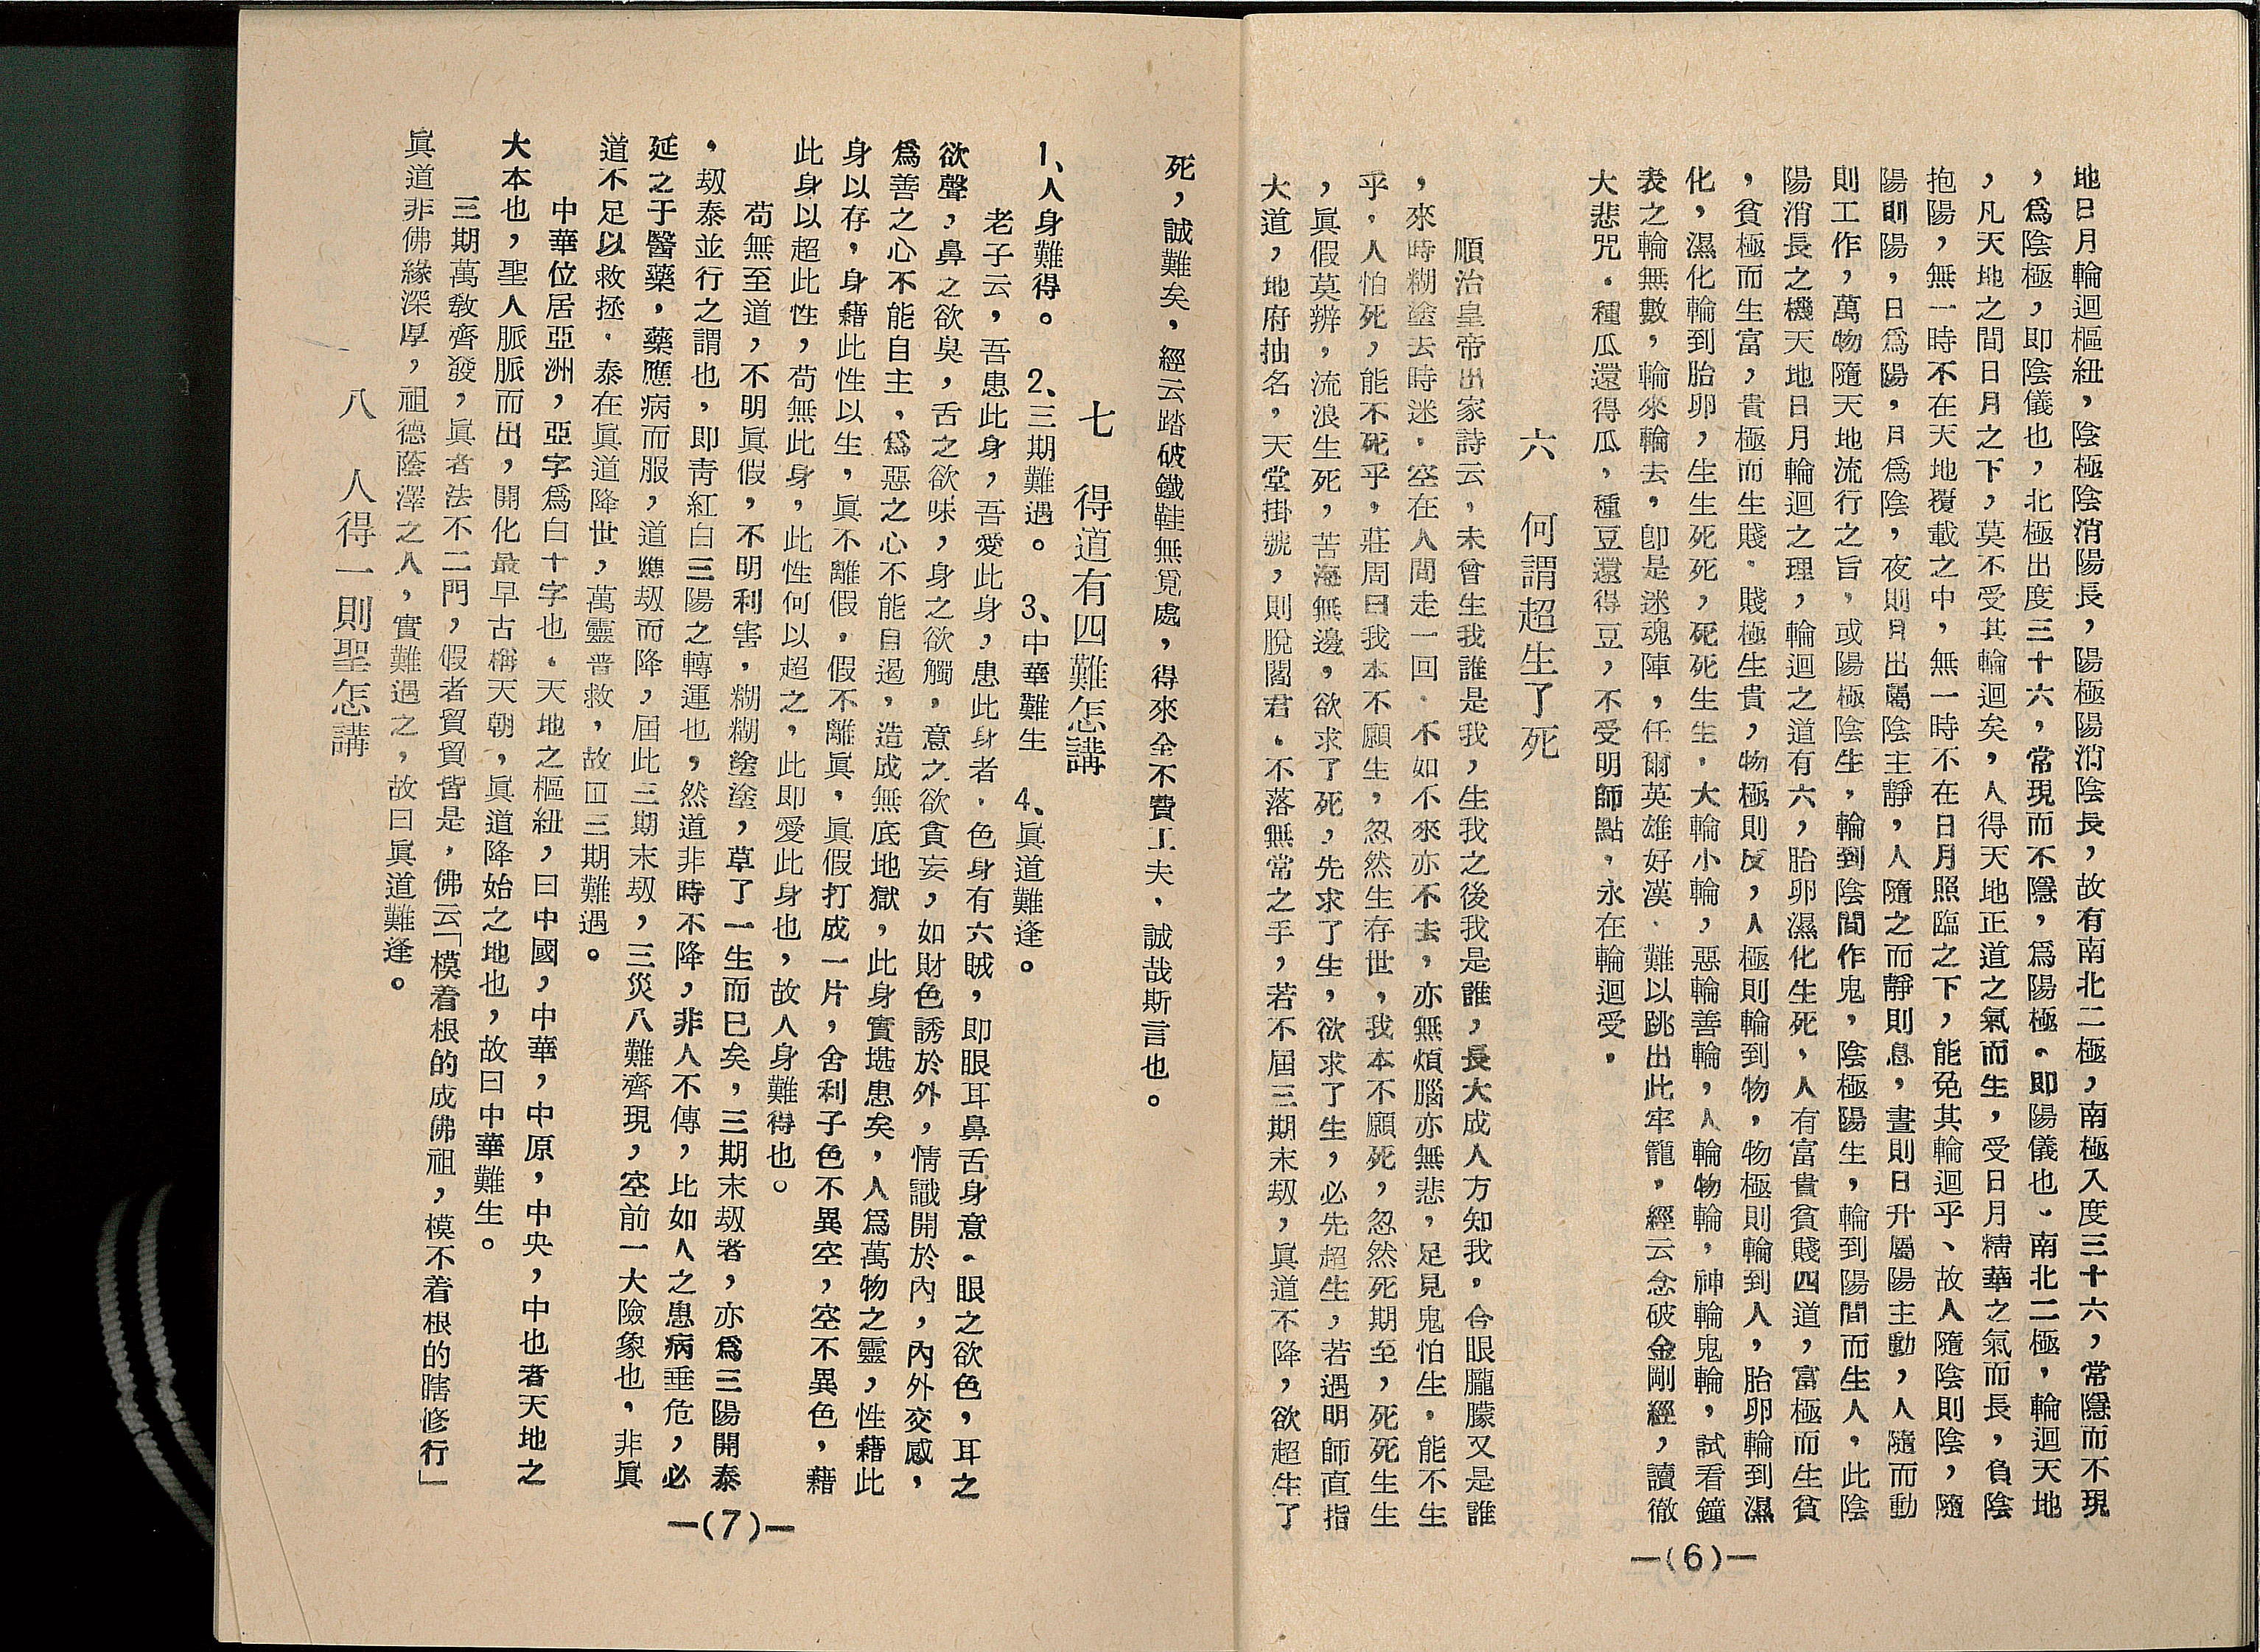 地日月輪迴樞紐，陰極陰消陽長，陽極陽消陰長，故有南北二極，南極入度三十六，常隱而不現
，爲陰極，即陰儀也，北極出度三十六，常現而不隱，爲陽極。即陽儀也。南北二極，輪迴天地
，凡天地之間日月之下，莫不受其輪迴矣，人得天地正道之氣而生，受日月精華之氣而長，負陰
抱陽，無一時不在天地覆載之中，無一時不在日月照臨之下，能免其輪迴乎、故人隨陰則陰，隨
陽則陽，日爲陽，月爲陰，夜則月出屬陰主靜，人隨之而靜則息，晝則日升屬陽主動，人隨而動
則工作，萬物隨天地流行之旨，或陽極陰生，輪到陰間作鬼，陰極陽生，輪到陽間而生人，此陰
陽消長之機天地日月輪迴之理，輪迴之道有六，胎卵濕化生死，人有富貴貧賤四道，富極而生貧
，貧極而生富，貴極而生賤．賤極生貴，物極則反，人極則輪到物，物極則輪到人，胎卵輪到濕
化，濕化輪到胎卵，生生死死，死死生生，大輪小輪，惡輪善輪，人輪物輪，神輪鬼輪，試看鐘
表之輪無數，輪來輪去，卽是迷魂陣，任爾英雄好漢．難以跳出此牢籠，經云念破金剛經，讀徹
大悲咒．種瓜還得瓜，種豆還得豆，不受明師點，永在輪迴受。
六　何謂超生了死
順治皇帝出家詩云，未曾生我誰是我，生我之後我是誰，長大成人方知我，合眼朧朦又是誰
，來時糊塗去時迷．空在人間走一回．不如不來亦不去，亦無煩腦亦無悲，足見鬼怕生，能不生
乎，人怕死，能不死乎，莊周曰我本不願生，忽然生存世，我本不願死，忽然死期至，死死生生
，眞假莫辨，流浪生死，苦海無邊，欲求了死，先求了生，欲求了生，必先超生，若遇明師直指
大道，地府抽名，天堂掛號，則脫閻君．不落無常之手，若不屆三期末刼，眞道不降，欲超生了
—(6)—
死，誠難矣，經云踏破鐵鞋無覓處，得來全不費工夫、誠哉斯言也。
七　得道有四難怎講
1、人身難得。 2、三期難遇。 3、中華難生 4、眞道難逢。
老子云，吾患此身，吾愛此身，患此身者．色身有六賊，即眼耳鼻舌身意。眼之欲色，耳之
欲聲，鼻之欲臭，舌之欲味，身之欲觸，意之欲貪妄，如財色誘於外，情識開於內，內外交感，
爲善之心不能自主，爲惡之心不能自遏，造成無底地獄，此身實堪患矣，人爲萬物之靈，性藉此
身以存，身藉此性以生，眞不離假，假不離眞，眞假打成一片，舍利子色不異空，空不異色，藉
此身以超此性，苟無此身，此性何以超之，此即愛此身也，故人身難得也。
苟無至道，不明眞假，不明利害，糊糊塗塗，草了一生而已矣，三期末刼者，亦爲三陽開泰
，刼泰並行之謂也，即靑紅白三陽之轉運也，然道非時不降，非人不傳，比如人之患病垂危，必
延之于醫藥，藥應病而服，道應刼而降，屆此三期末刼，三災八難齊現，空前一大險象也，非眞
道不足以救拯．泰在眞道降世，萬靈普救，故曰三期難遇。
中華位居亞洲，亞字爲白十字也．天地之樞紐，曰中國，中華，中原，中央，中也者天地之
大本也，聖人脈脈而出，開化最早古稱天朝，眞道降始之地也，故曰中華難生。
三期萬敎齊發，眞者法不二門，假者貿貿皆是，佛云「模着根的成佛祖，模不着根的瞎修行」
眞道非佛緣深厚，祖德蔭澤之人，實難遇之，故曰眞道難逢。
八　人得一則聖怎講
—(7)—